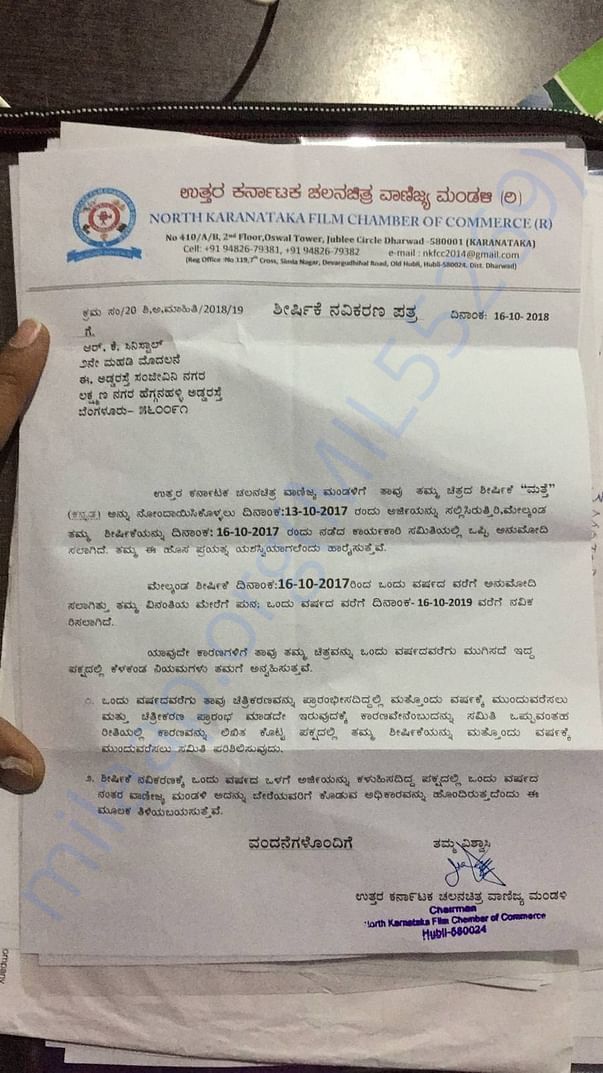 ಉತ್ತರ ಕರ್ನಾಟಕ ಚಲನಚಿತ್ರ ವಾಣಿಜ್ಯ ಮಂಡಳಿ (ರಿ)
NORTH KARANATAKA FILM CHAMBER OF COMMERCE (R)
No 410/A/B, 2nd Floor,Oswal Tower, Jublee Circle Dharwad -580001 (KARANATAKA)
Cell: +91 94826-79381, +91 94826-79382 e-mail : nkfcc2014@gmail.com
(Reg Office :No 119,7th Cross, Simla Nagar, Devargudhihal Road, Old Hubli, Hubli-580024. Dist. Dharwad)
ಕ್ರಮ ಸಂ/20 ಶಿ,ಅ,ಮಾಹಿತಿ/2018/19 ಶೀರ್ಷಿಕೆ ನವಿಕರಣ ಪತ್ರ ದಿನಾಂಕ: 16-10- 2018
ಗೆ.
ಆರ್. ಕೆ. ಸಿನಿಸ್ಟಾಲ್
೨ನೇ ಮಹಡಿ ಮೊದಲನೆ
ಈ. ಅಡ್ಡರಸ್ತೆ ಸಂಜೀವಿನಿ ನಗರ
ಲಕ್ಷ್ಮಣ ನಗರ ಹೆಗ್ಗನಹಳ್ಳಿ ಅಡ್ಡರಸ್ತೆ
ಬೆಂಗಳೂರು- ೫೬೦೦೯೧
ಉತ್ತರ ಕರ್ನಾಟಕ ಚಲನಚಿತ್ರ ವಾಣಿಜ್ಯ ಮಂಡಳಿಗೆ ತಾವು ತಮ್ಮ ಚಿತ್ರದ ಶೀರ್ಷಿಕೆ "ಮತ್ತೆ"
(ಕನ್ನಡ) ಅನ್ನು ನೋಂದಾಯಿಸಿಕೊಳ್ಳಲು ದಿನಾಂಕ:13-10-2017 ರಂದು ಅರ್ಜಿಯನ್ನು ಸಲ್ಲಿಸಿರುತ್ತಿರಿ,ಮೇಲ್ಕಂಡ
ತಮ್ಮ ಶೀರ್ಷಿಕೆಯನ್ನು ದಿನಾಂಕ: 16-10-2017 ರಂದು ನಡೆದ ಕಾರ್ಯಕಾರಿ ಸಮಿತಿಯಲ್ಲಿ ಒಪ್ಪಿ ಅನುಮೋದಿ
ಸಲಾಗಿದೆ. ತಮ್ಮ ಈ ಹೊಸ ಪ್ರಯತ್ನ ಯಶಸ್ವಿಯಾಗಲೆಂದು ಹಾರೈಸುತ್ತೆವೆ.
ಮೇಲ್ಕಂಡ ಶೀರ್ಷಿಕೆ ದಿನಾಂಕ:16-10-2017ರಿಂದ ಒಂದು ವರ್ಷದ ವರೆಗೆ ಅನುಮೋದಿ
ಸಲಾಗಿತ್ತು ತಮ್ಮ ವಿನಂತಿಯ ಮೇರೆಗೆ ಪುನ: ಒಂದು ವರ್ಷದ ವರೆಗೆ ದಿನಾಂಕ- 16-10-2019 ವರೆಗೆ ನವಿಕ
ರಿಸಲಾಗಿದೆ.
ಯಾವುದೇ ಕಾರಣಗಳಿಗೆ ತಾವು ತಮ್ಮ ಚಿತ್ರವನ್ನು ಒಂದು ವರ್ಷದವರೆಗು ಮುಗಿಸದೆ ಇದ್ದ
ಪಕ್ಷದಲ್ಲಿ ಕೆಳಕಂಡ ನಿಯಮಗಳು ತಮಗೆ ಅನ್ವಹಿಸುತ್ತವೆ.
೧. ಒಂದು ವರ್ಷದವರೆಗು ತಾವು ಚಿತ್ರಿಕರಣವನ್ನು ಪ್ರಾರಂಭೀಸದಿದ್ದಲ್ಲಿ ಮತ್ತೊಂದು ವರ್ಷಕ್ಕೆ ಮುಂದುವರೆಸಲು
ಮತ್ತು ಚಿತ್ರೀಕರಣ ಪ್ರಾರಂಭ ಮಾಡದೇ ಇರುವುದಕ್ಕೆ ಕಾರಣವೇನೆಂಬುದನ್ನು ಸಮಿತಿ ಒಪ್ಪುವಂತಹ
ರೀತಿಯಲ್ಲಿ ಕಾರಣವನ್ನು ಲಿಖಿತ ಕೊಟ್ಟ ಪಕ್ಷದಲ್ಲಿ ತಮ್ಮ ಶೀರ್ಷಿಕೆಯನ್ನು ಮತ್ತೊಂದು ವರ್ಷಕ್ಕೆ
ಮುಂದುವರೆಸಲು ಸಮಿತಿ ಪರಿಶಿಲಿಸುವುದು.
೨. ಶೀರ್ಷಿಕೆ ನವಿಕರಣಕ್ಕೆ ಒಂದು ವರ್ಷದ ಒಳಗೆ ಅರ್ಜಿಯನ್ನು ಕಳುಹಿಸದಿದ್ದ ಪಕ್ಷದಲ್ಲಿ ಒಂದು ವರ್ಷದ
ನಂತರ ವಾಣೀಜ್ಯ ಮಂಡಳಿ ಅದನ್ನು ಬೇರೆಯವರಿಗೆ ಕೊಡುವ ಅಧಿಕಾರವನ್ನು ಹೊಂದಿರುತ್ತದೆಂದು ಈ
ಮೂಲಕ ತಿಳಿಯಬಯಸುತ್ತೆವೆ.
ವಂದನೆಗಳೊಂದಿಗೆ ತಮ್ಮ ವಿಶ್ವಾಸಿ
ಉತ್ತರ ಕರ್ನಾಟಕ ಚಲನಚಿತ್ರ ವಾಣಿಜ್ಯ ಮಂಡಳಿ
Chairman
North Karnataka Film Chamber of Commerce
Hubli-580024